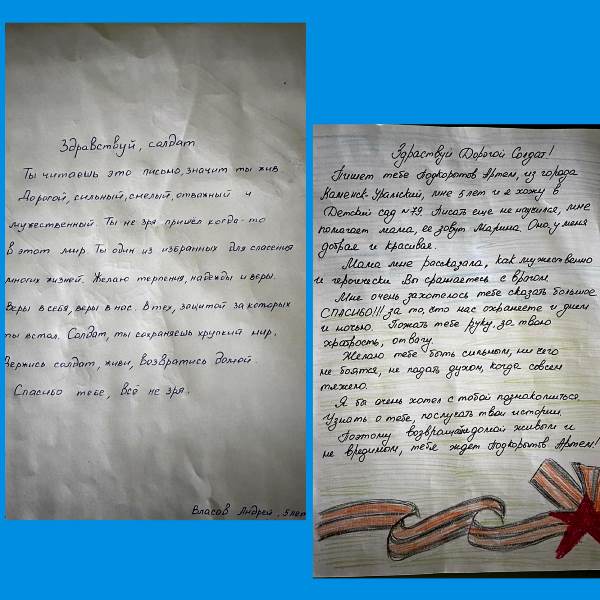 Здравствуй, солдат
Ты читаешь это письмо, значит ты жив.
Дорогой, сильный, смелый, отважный и
мужественный. Ты не зря пришёл когда-то
в этот мир. Ты один из избранных для спасения
многих жизней. Желаю терпения, надежды и веры.
Веры в себя, веры в нас. В тех, защитой за которых
ты встал. Солдат, ты сохраняешь хрупкий мир.
Держись солдат, живи, возвратись домой.
Спасибо тебе, всё не зря.
Власов Андрей, 5 лет
Здраствуй Дорогой Солдат!
Пишет тебе Подкорытов Артем, из города
Каменск-Уральский, мне 5 лет и я хожу в
Детский сад №79. Писать еще не научился, мне
помогает мама, ее зовут Марина. Она, у меня
добрая и красивая.
Мама мне рассказала, как мужественно
и героически Вы сражаетесь с врагом.
Мне очень захотелось тебе сказать большое
СПАСИБО!!! за то, что нас охраняете и днем
и ночью. Пожать тебе руку, за твою
храбрость, отвагу.
Желаю тебе быть сильным, ни чего
не боятся, не падать духом, когда совсем
тяжело.
Я бы очень хотел с тобой познакомиться.
Узнать о тебе, послушать твои истории.
Поэтому возвращайся домой живым и
не вредимом, тебя ждет Подкорытов Артем!